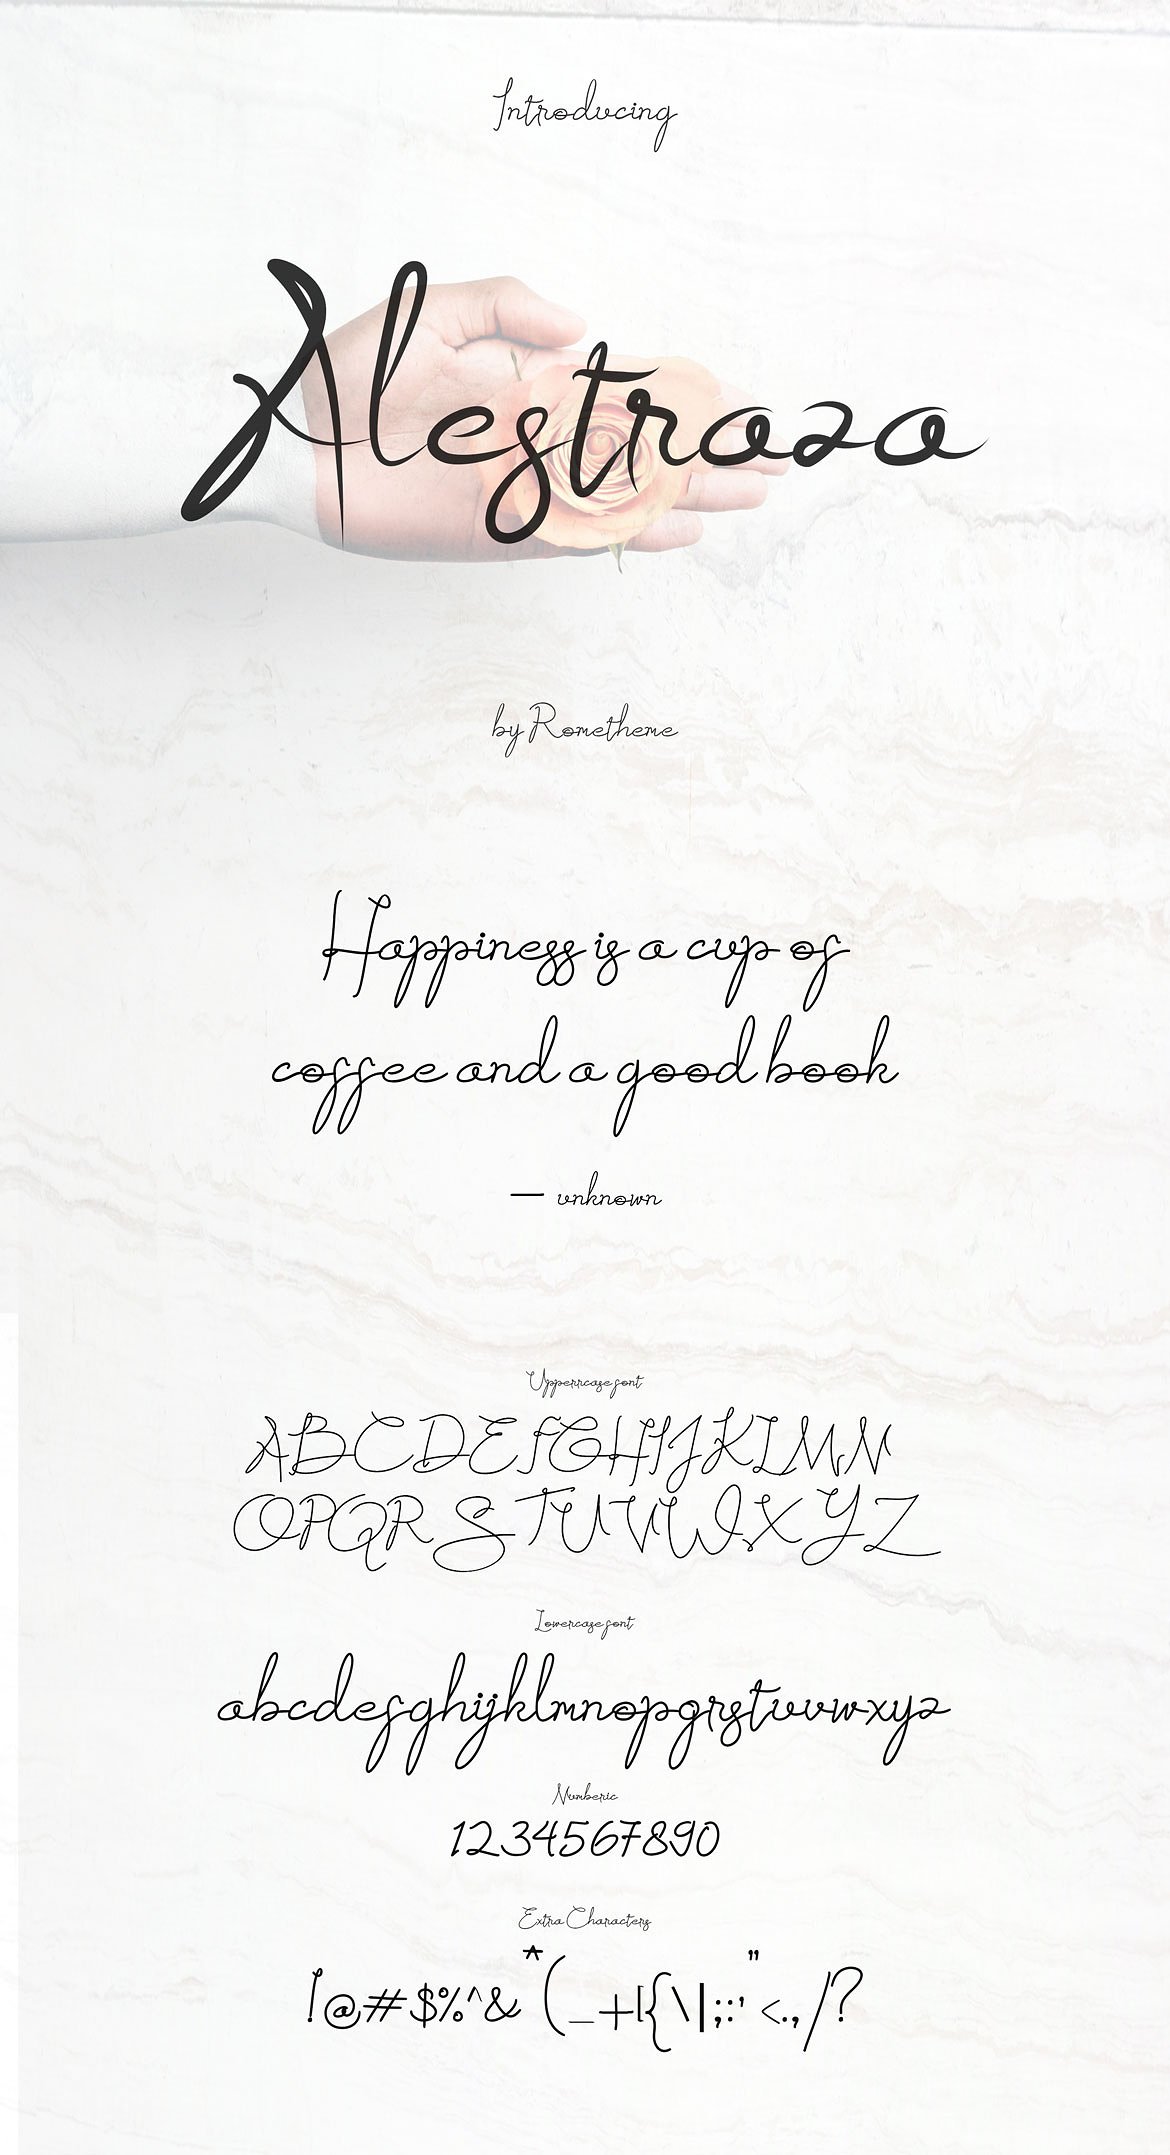 Introducing
Alestraza
by Rometheme
Happiness is a cup of
coffee and a good book
— unknown
Upperrcase font
ABCDEFGHIJKLMN
OPQRSTUVWXYZ
Lowercase font
abcdefghijklmnopqrstuvwxyz
Numberic
1234567890
Extra Characters
!@#$%^&*(_+[{\|;:'"<.,/?